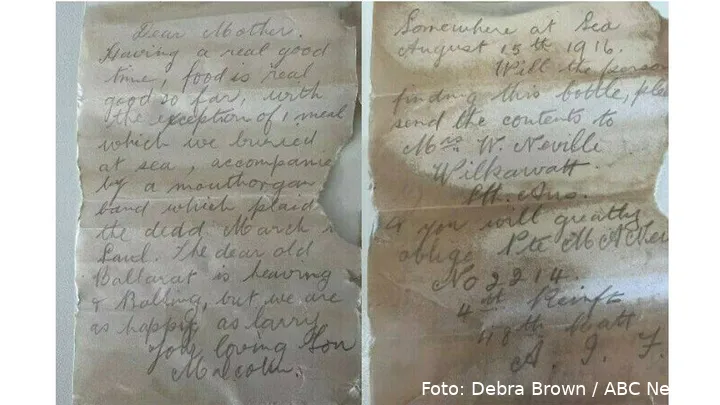 Dear Mother.
Having a real good
time, food is real
good so far, with
the exception of 1 meal
which we buried
at sea, accompanie
by a mouthorgan
band which plaid
the dedd March
Saul. The dear old
Ballarat is heaving
& Rolling, but we are
as happy as larry
Your loving Son
Malcolm.
Somewhere at Sea
August 15th 1916.
Will the person
finding this bottle, plea
send the contents to
Mrs W. Neville
Wilkawatt.
Sth. Aus.
& you will greatly
oblige Pte M A Nev
No 2214.
4th Reinfts
48th Batt
A. I. F.
Foto: Debra Brown / ABC Ne